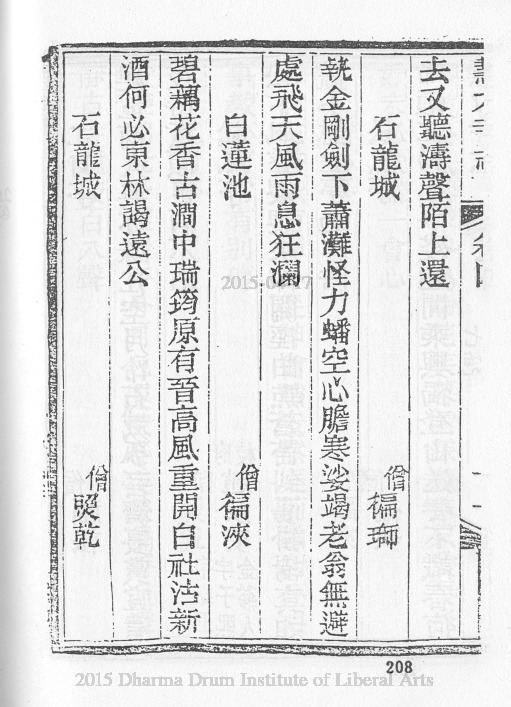 去又聽濤聲陌上還
石龍城 僧徧䎘
執金剛劍下蕭灘怪力蟠空心膽寒娑竭老翁無避
處飛天風雨息狂瀾
白蓮池 僧徧浹
碧藕花香古澗中瑞筠原有晉高風重開白社沽新
酒何必東林謁遠公
石龍城 僧煛乾
208
2015 Dharma Drum Institute of Liberal Arts